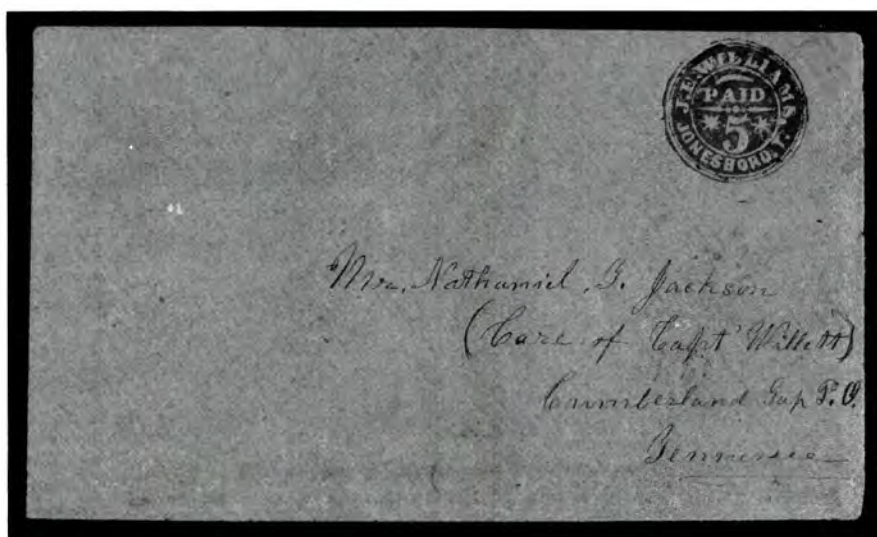 J. E. WILLIAMS,
PAID
5
JONESBORO, T.
Mr. Nathaniel G. Jackson
(Care of Capt Willett)
Cumberland Gap P.O.
Tennessee